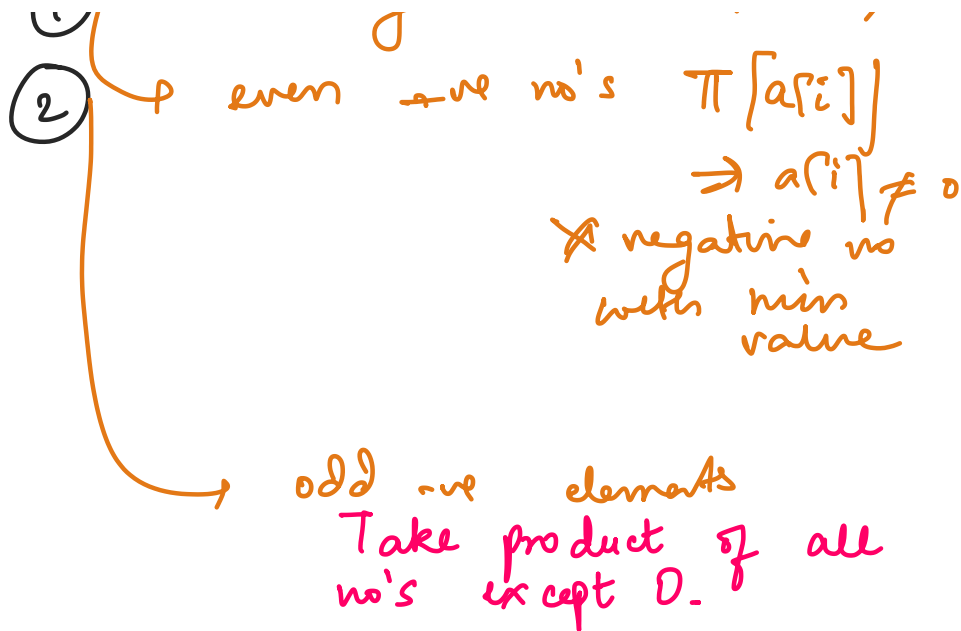 2
even -ve no's π[a[i]]
→ a[i] ≠ 0
negative no
with min
value
odd -ve elements
Take product of all
no's except 0.